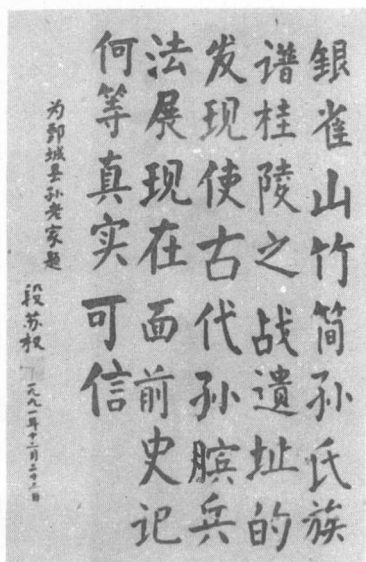 銀雀山竹简孙氏族
谱桂陵之战遗址的
发现使古代孙膑兵
法展现在面前史记
何等真实可信
为鄄城县孙老家题
段苏权
一九九一年十二月二十二日